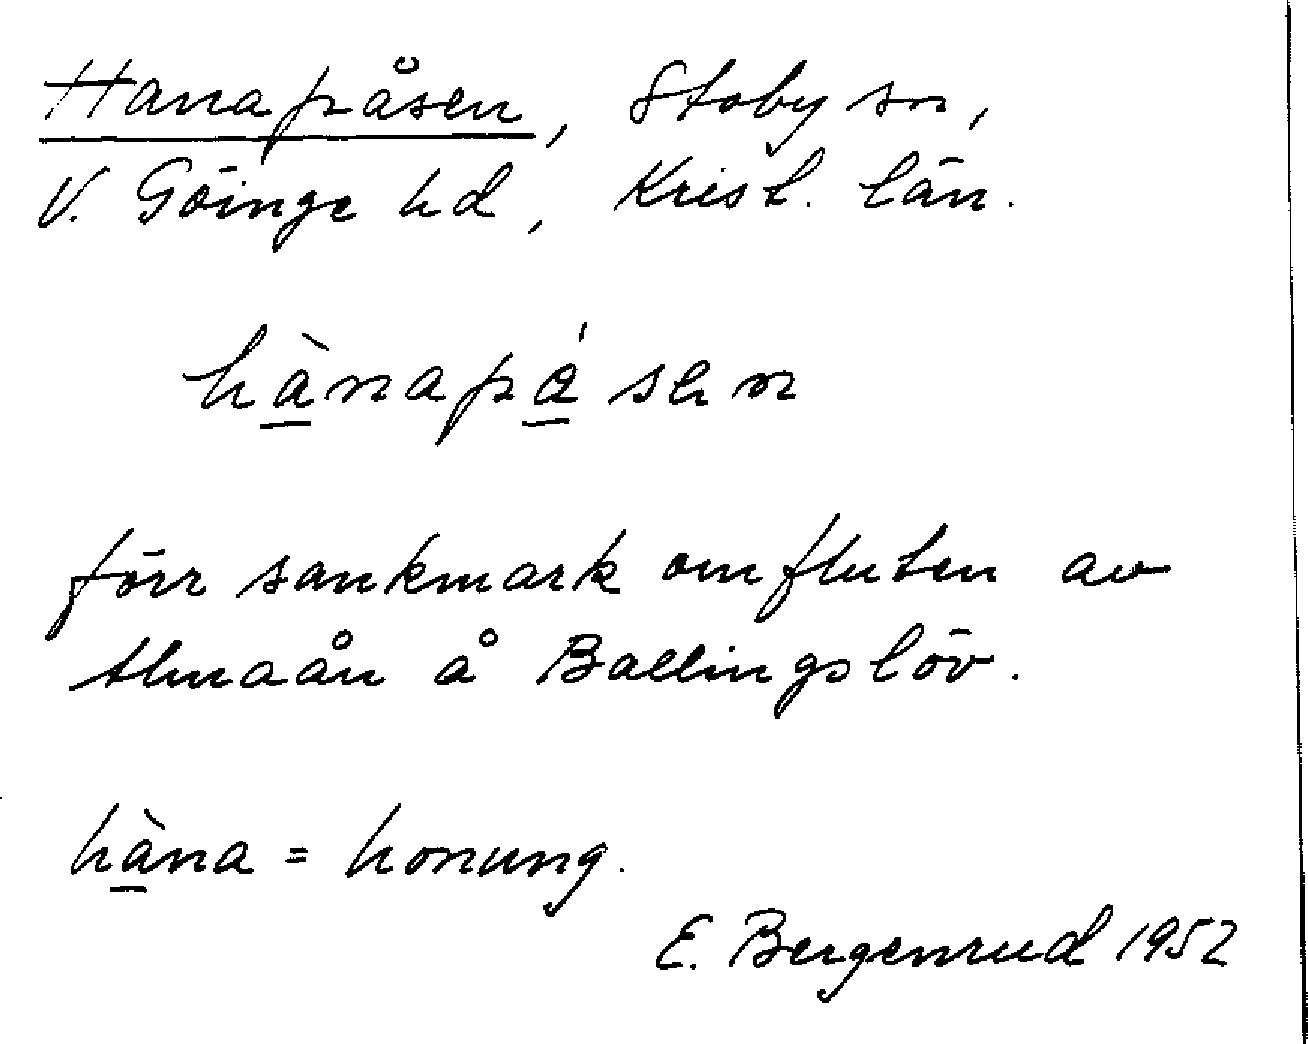 Hanapåsen, Stoby sn,
V. Göinge hd, Krist. län.
hànapásen
förr sankmark omfluten av
Almaån å Ballingslöv.
hàna = honung.
E. Bergenrud 1952